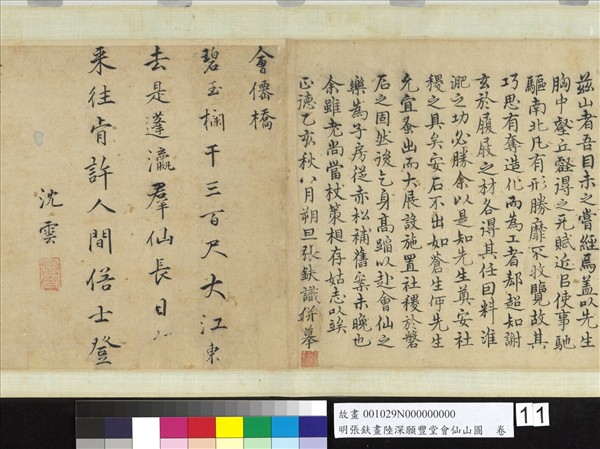 茲山者吾目未之嘗經焉蓋以先生
胸中壑丘
驅南北凡有形勝靡不收覽故其
巧思有奪造化而為工者郗超知謝
玄於履屐之材各得其任回料淮
淝之功必勝余以是知先生真安社
稷之具矣安石不出如蒼生何先生
允宜蚤出而大展設施置社稷於磐
石之固然後乞身高蹈以赴會仙之
樂為子房從赤松補舊案未晚也
余雖老尚當杖策相存姑志以俟
正德乙亥秋八月朔旦張鈇識併摹
會僊橋
碧玉欄干三百尺大江東
去是蓬瀛羣仙長日
來往肯許人間俗士登
沈雲
故畫 001029N000000000
明張鈇畫陸深願豐堂會仙山圖 卷
11